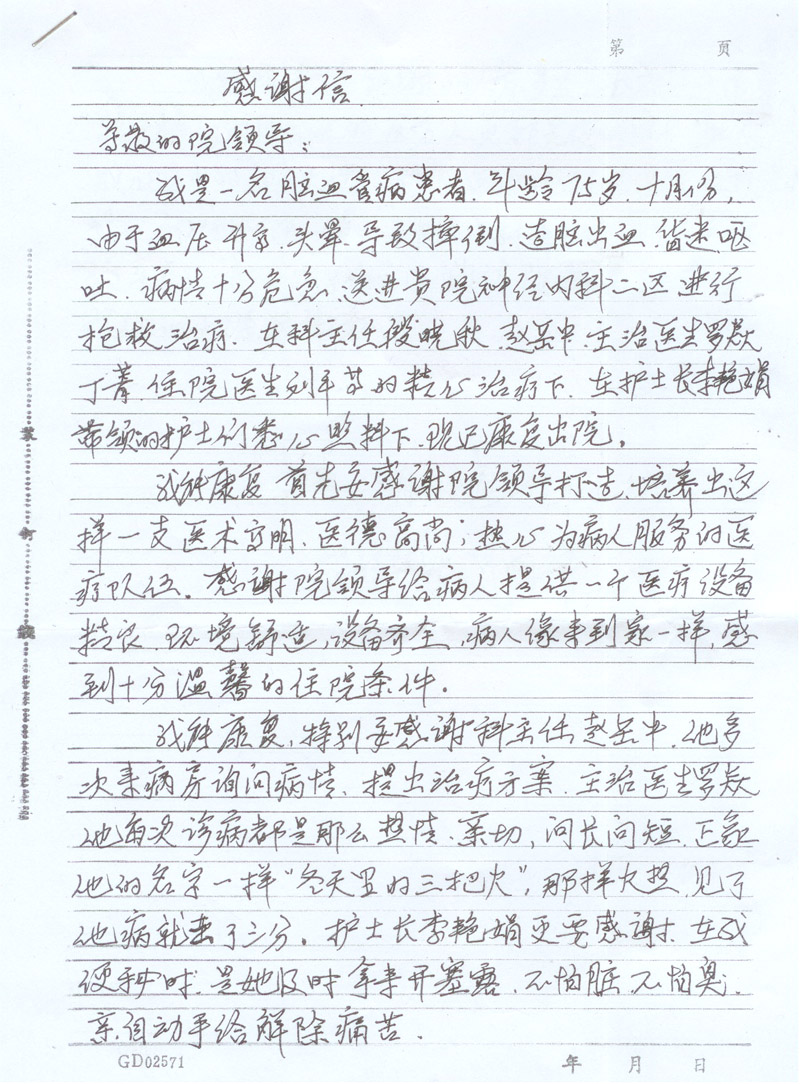 第 页
感谢信
尊敬的院领导：
我是一名脑血管病患者.年龄75岁.十月份,
由于血压升高.头晕.导致摔倒.造脑出血.皆迷呕
吐.病情十分危急.送进贵院神经内科二区进行
抢救治疗.在科主任段晓秋.赵岳中.主治医生罗焱
丁菁.住院医生刘 的精心治疗下.在护士长李艳娟
带领的护士们悉心照料下.现已康复出院。
我能康复首先要感谢院领导打造.培养出这
样一支医术高明.医德高尚;热心为病人服务的医
疗队伍。感谢院领导给病人提供一个医疗设备
精良.环境舒适,设备齐全.病人像来到家一样,感
到十分温馨的住院条件。
我能康复,特别要感谢科主任赵岳中.他多
次来病房询问病情.提出治疗方案.主治医生罗焱
他每次诊病都是那么热情.亲切,问长问短.正象
他的名字一样"冬天里的三把火",那样火热.见了
他病就去了三分。护士长李艳娟更要感谢.在我
便秘时.是她及时拿来开塞露.不怕脏.不怕臭.
亲自动手给解除痛苦.
装
订
线
GD02571 年 月 日